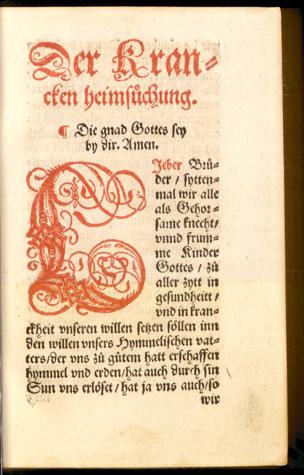 Der Kran=
cken heimsůchung.
¶ Die gnad Gottes sey
by dir. Amen.
Lieber Brü=
der / sytten=
mal wir alle
als Gehor=
same knecht/
vnnd frum=
me Kinder
Gottes / zů
aller zytt in
gesundheitt/
vnd in kran=
ckheit vnseren willen setzen söllen inn
den willen vnsers Hymmelischen vat=
ters/der vns zů gůtem hatt erschaffen
hymmel vnd erden/hat auch durch sin
Sun vns erlöset/hat ja vns auch/so
wir